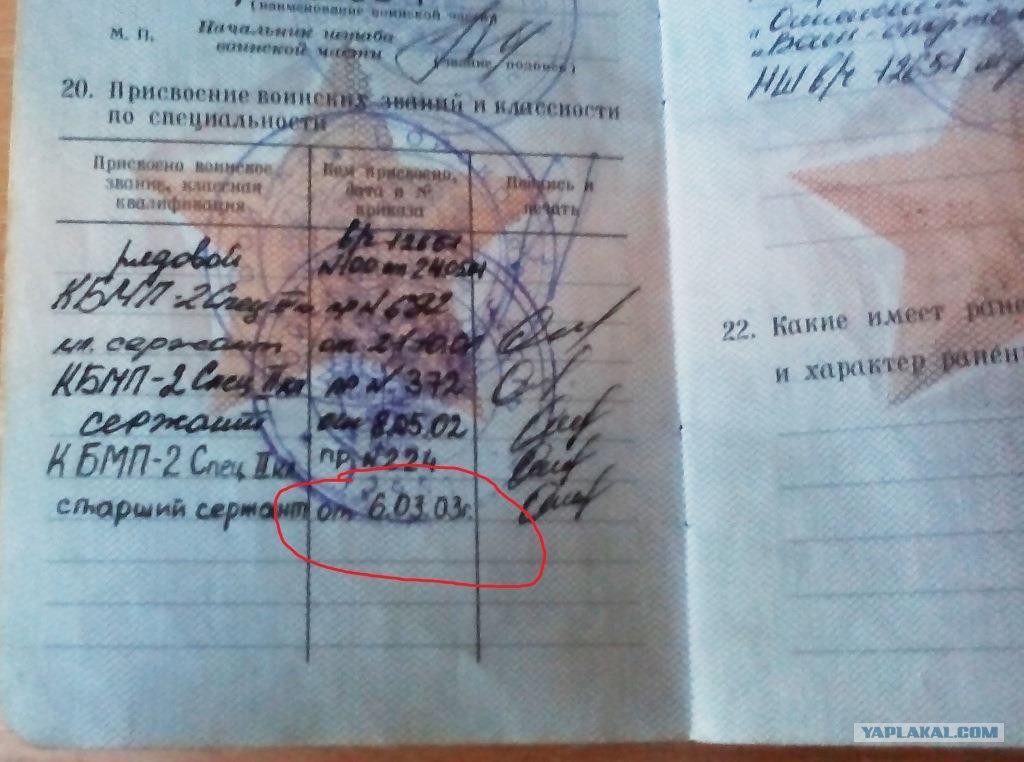 (наименование воинской части)
М. П. Начальник штаба
воинской части
(звание, подпись)
20. Присвоение воинских званий и классности
по специальности
Присвоено воинское звание, классная квалификация
Кем присвоено, дата и № приказа
Подпись и печать
рядовой
№100 от
КБМП-2 Спец пр №
мл. сержант от
КБМП-2 Спец II кл пр № 372
сержант от 8.05.02
КБМП-2 Спец II кл пр №224
старший сержант от 6.03.03г.
НШ в/ч 12651
22. Какие имеет ране
и характер ранен
YAPLAKAL.COM